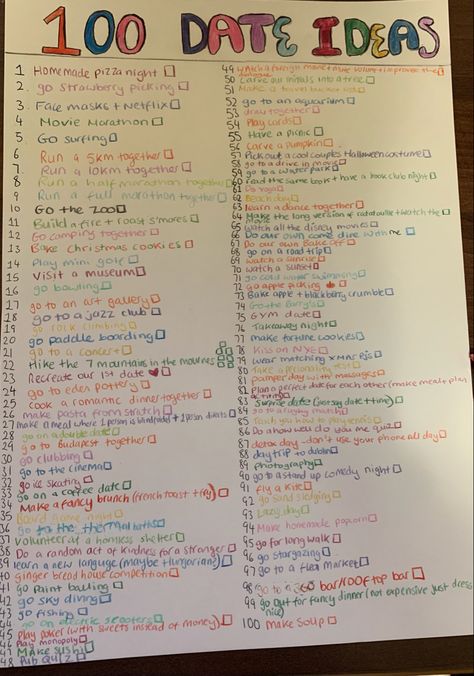 100 DATE IDEAS
1 Homemade pizza night
2. go strawberry picking
3. Face masks + Netflix
4 Movie Marathon
5. GO surfing
6 Run a 5km together
7. Run a 10km together
8 Run a half marathon together
9 Run a full marathon together
10 GO the ZOO
11 Build a fire + roast s'mores
12 GO camping together
13 Bake Christmas cookies
14 Play mini golf
15 Visit a museum
16 go bowling
17 go to an art gallery
18 go to a jazz club
19 go rock climbing
20 go paddle boarding
21 go to a concert
22 Hike the 7 mountains in the mournes
23 Recreate our 1st date
24 go to eden pottery
25 cook a romantic dinner together
26 make pasta from scratch
27 make a meal where 1 person is blindfolded + 1 person directs
28 go on a double date
29 go to Budapest together
30 go clubbing
31 go to the cinema
32 go ice skating
33 go on a coffee date
34 Make a fancy brunch (french toast + fry)
35 Board game night
36 go to the thermal baths
37 volunteer at a homless shelter
38 Do a random act of kindness for a stranger
39 learn a new languge (maybe Hungarian)
40 ginger bread house competition
41 go Paint balling
42 go sky diving
43 go fishing
44 go on electric scooters
45 play poker (with sweets instead of money)
46 Play monopoly
47 Make sushi
48 Pub Quiz
49 watch a foreign movie + mute volume + improvise the dialogue
50 Carve our initials into a tree
51 Make a travel bucket list
52 go to an aquarium
53 draw together
54 Play cards
55 Have a picnic
56 Carve a pumpkin
57 Pick out a cool couples Halloween costume
58 go to a drive in movie
59 go to a water park
60 read the same book + have a book club night
61 Do yoga
62 Beach day
63 learn a dance together
64 Make the long version of ratatouille + watch the movie
65 watch all the disney movies
66 Do our own come dine with me
67 Do our own Bake off
68 go on a road trip
69 watch a sunrise
70 watch a sunset
71 go cold water swimming
72 go apple picking
73 Bake apple + blackberry crumble
74 Go the
75 GYM date
76 Takeaway night
77 make fortune cookies
78 Kiss on NYE
79 wear matching xmas pjs
80 Take a personality test
81 pamper day with massages
82 Plan a perfect date for each other (make meal + plan activities)
83 Surprise dates (just say date + time)
84 go to a rugby match
85 Teach you how to play
86 Do a how well do you know me quiz
87 detox day - don't use your phone all day
88 day trip to dublin
89 photography
90 go to a stand up comedy night
91 fly a kite
92 go sand sledging
93 Lazy day
94 Make homemade popcorn
95 go for long walk
96 go stargazing
97 go to a flea market
98 go to a bar/rooftop bar
99 go out for fancy dinner (not expensive just dress nice)
100 Make soup